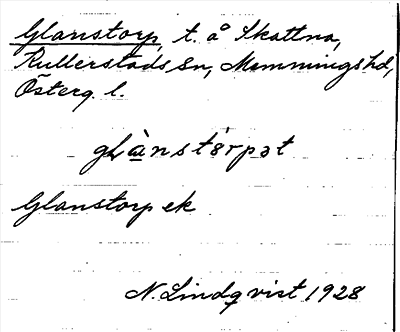 Glanstorp, t. å Skattna,
Kullerstads sn, Memmings hd,
Österg. l.
glànstórpət
Glanstorp ek
N. Lindqvist 1928